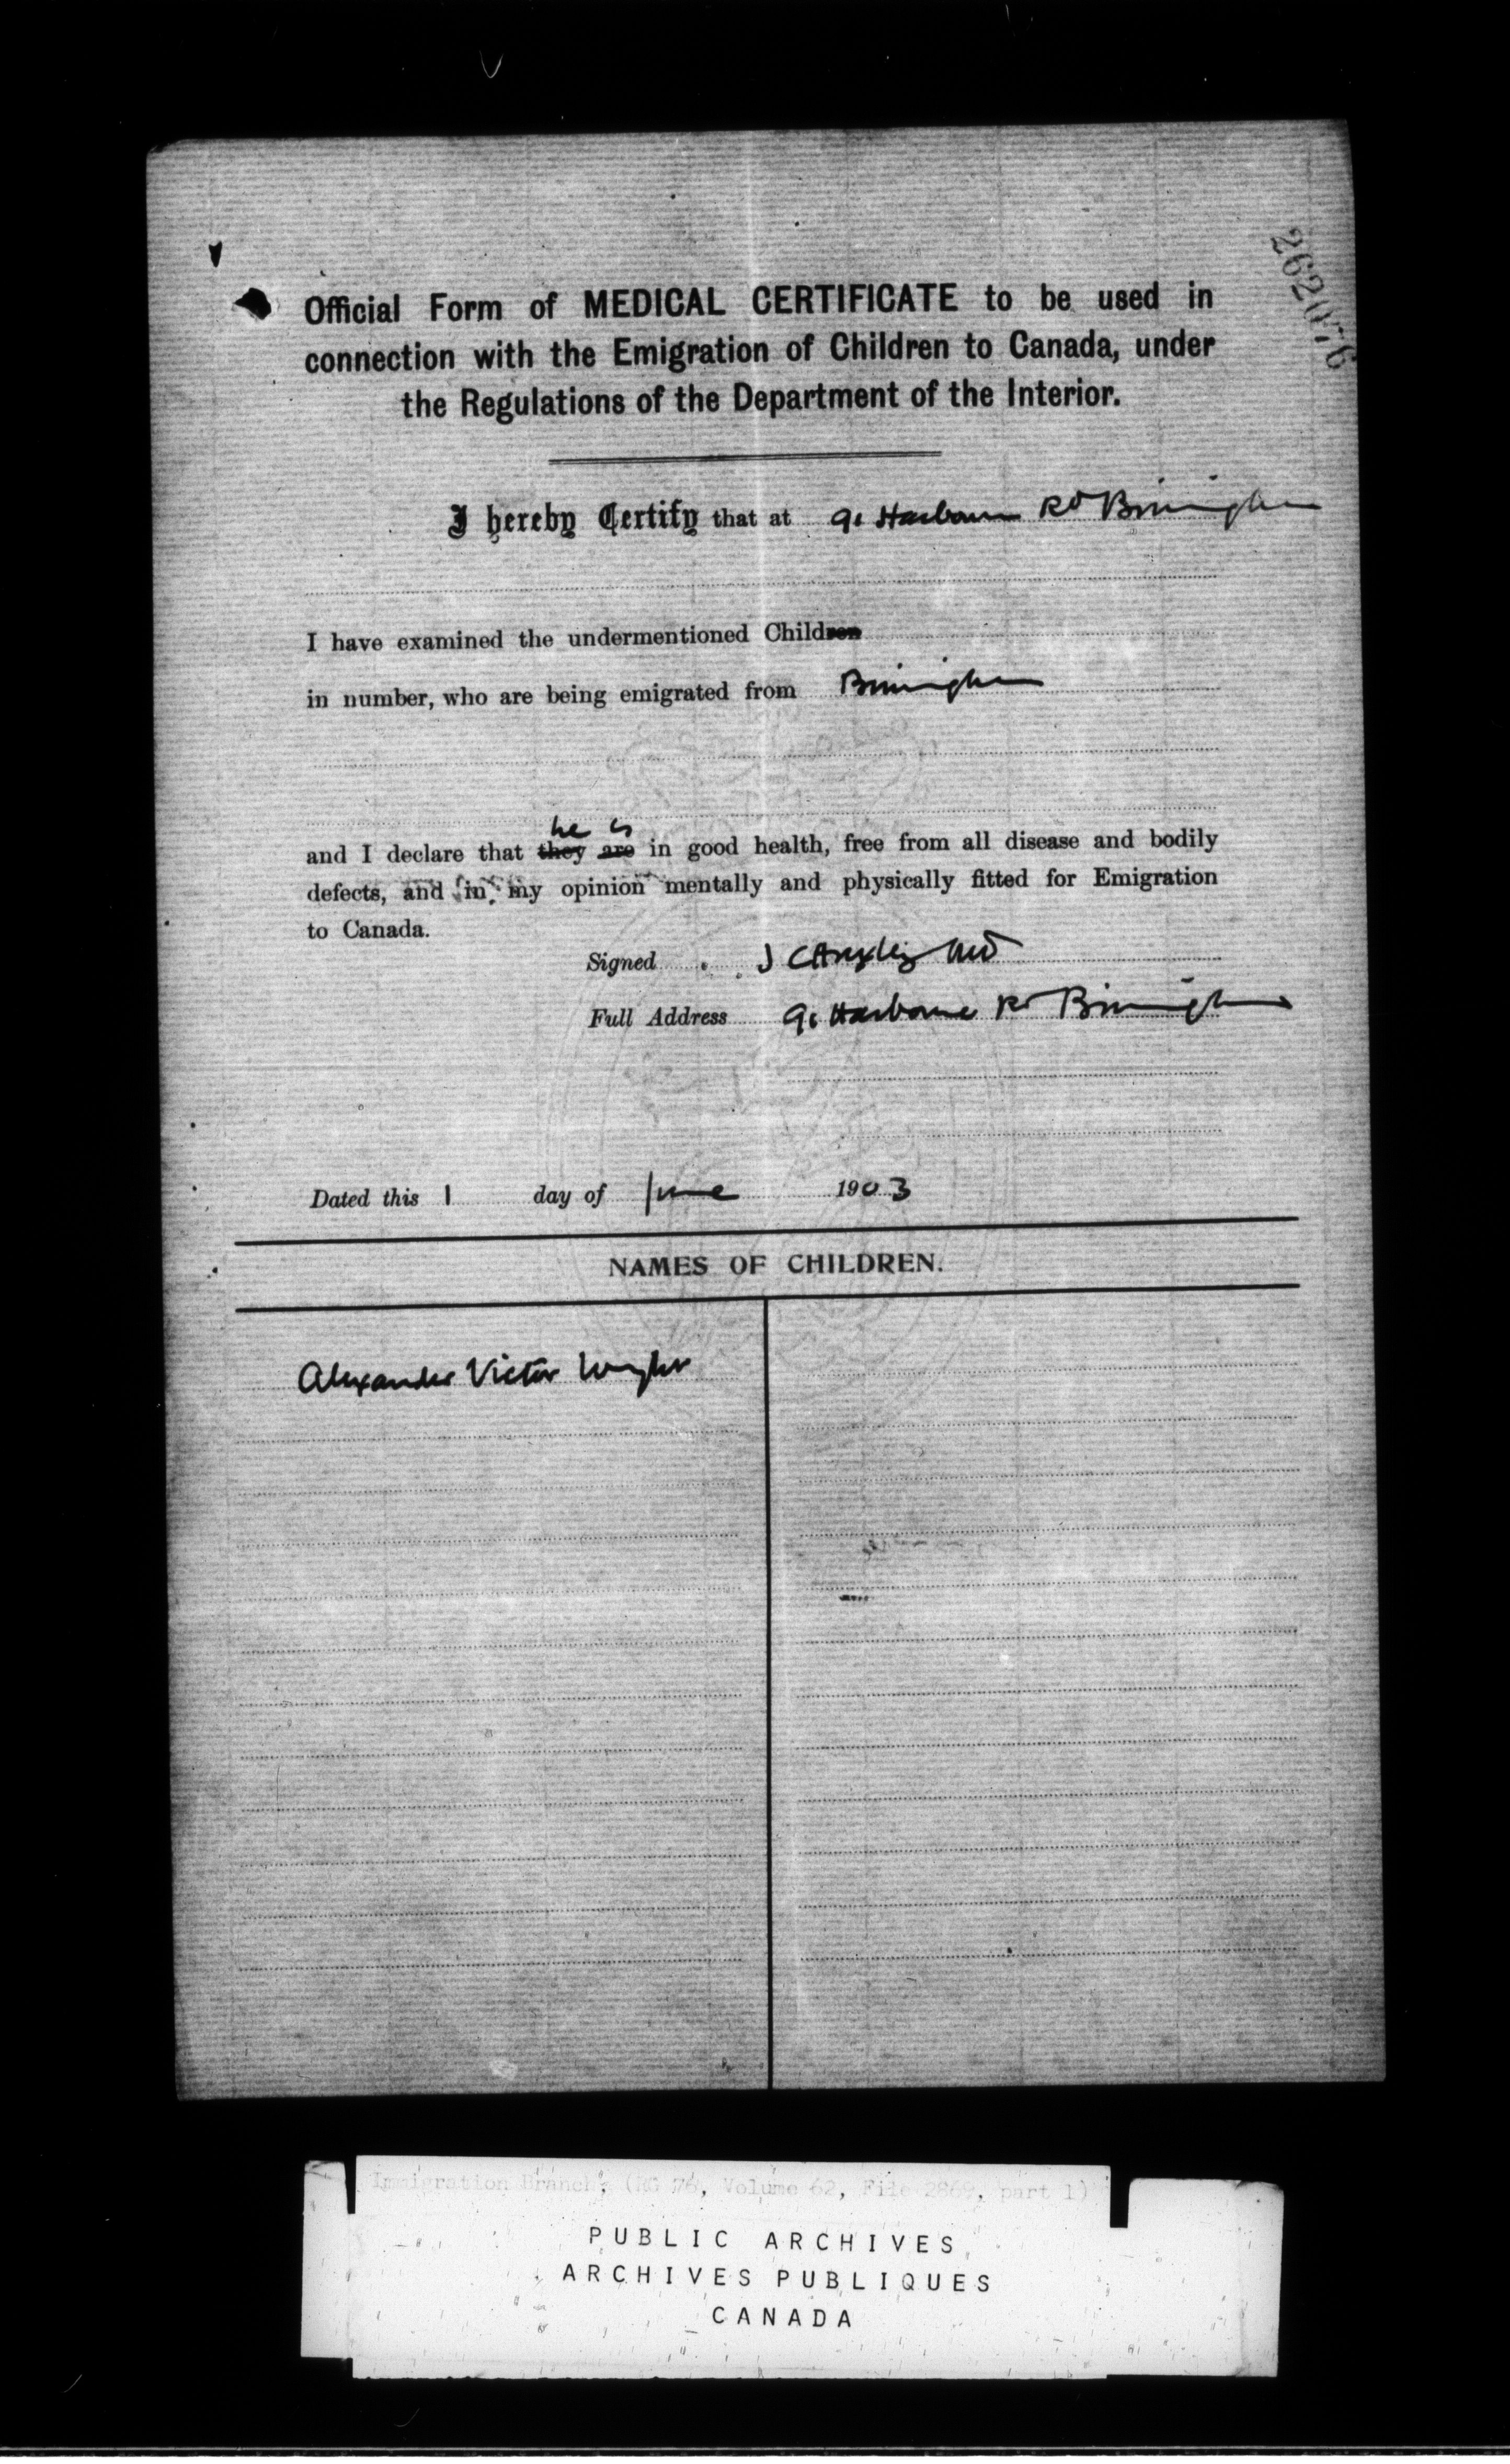 262076
Official Form of MEDICAL CERTIFICATE to be used in
connection with the Emigration of Children to Canada, under
the Regulations of the Department of the Interior.
I hereby Certify that at 91 Harborne Rd Birmingham
I have examined the undermentioned Children
in number, who are being emigrated from Birmingham
he is
and I declare that they are in good health, free from all disease and bodily
defects, and in my opinion mentally and physically fitted for Emigration
to Canada.
Signed J C
Full Address 91 Harborne Rd Birmingham
Dated this 1 day of June 1903
NAMES OF CHILDREN.
Alexander Victor Wright
Immigration Branch, (RG 76, Volume 62, File 2869, part 1)
PUBLIC ARCHIVES
ARCHIVES PUBLIQUES
CANADA